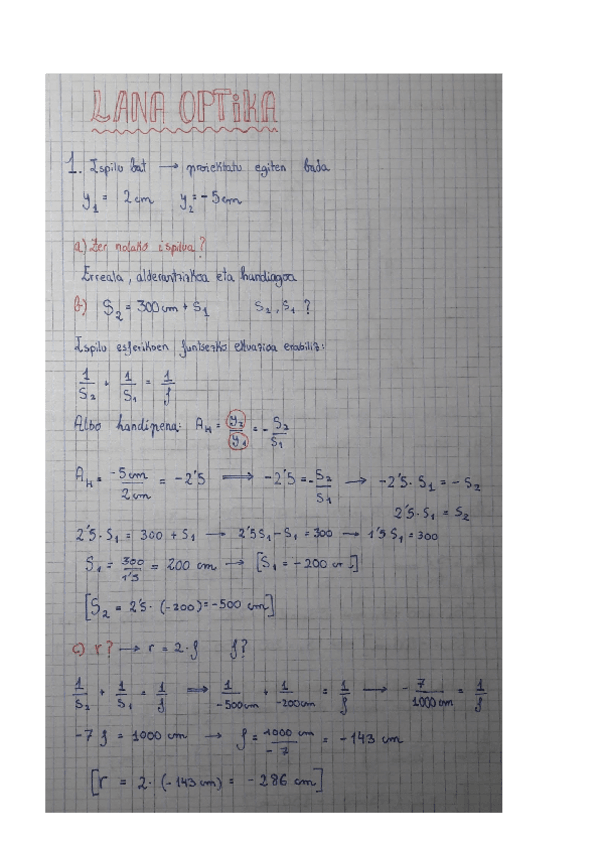 LANA OPTiKA
1. Ispilu bat → proiektatu egiten bada
y₁ = 2cm y₂ = -5cm
a) Zer nolako ispilua?
Erreala, alderantzizkoa eta handiagoa
b) S₂ = 300cm + S₁ S₂, S₁ ?
Ispilu esferikoen funtsezko ekuazioa erabiliz:
1/S₂ + 1/S₁ = 1/f
Albo handipena: A_H = y₂/y₁ = - S₂/S₁
A_H = -5cm/2cm = -2'5 ⟹ -2'5 = - S₂/S₁ → -2'5 · S₁ = - S₂
2'5 · S₁ = S₂
2'5 · S₁ = 300 + S₁ → 2'5 S₁ - S₁ = 300 → 1'5 S₁ = 300
S₁ = 300/1'5 = 200 cm → [S₁ = -200 cm]
[S₂ = 2'5 · (-200) = -500 cm]
c) r? → r = 2 · f f?
1/S₂ + 1/S₁ = 1/f ⟹ 1/-500cm + 1/-200cm = 1/f → - 7/1000 cm = 1/f
-7 f = 1000 cm → f = 1000 cm/-7 = -143 cm
[r = 2 · (-143 cm) = -286 cm]